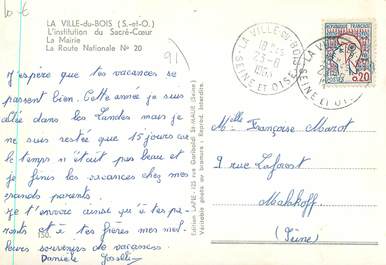 10 €
LA VILLE-du-BOIS (S.-et-O.)
L'institution du Sacré-Cœur
La Mairie
La Route Nationale N° 20
91
J'espère que tes vacances se
passent bien. Cette année je suis
allée dans les Landes mais je
ne suis restée que 15 jours car
le temps n'était pas beau et
je finis les vacances chez mes
grands parents.
Je t'envoie ainsi qu'à tes pa-
rents et à tes frères mes meil-
leurs souvenirs de vacances.
Danièle
Edition LAPIE - 125 rue Garibaldi St-MAUR (Seine)
Véritable photo au bromure : Reprod. interdite.
LA VILLE-DU-BOIS
23-8
SEINE ET OISE
LA VILLE
SEINE ET OISE
REPUBLIQUE FRANÇAISE
0,20
Mlle Françoise Marot
9 rue Laforest
Malakoff
(Seine)